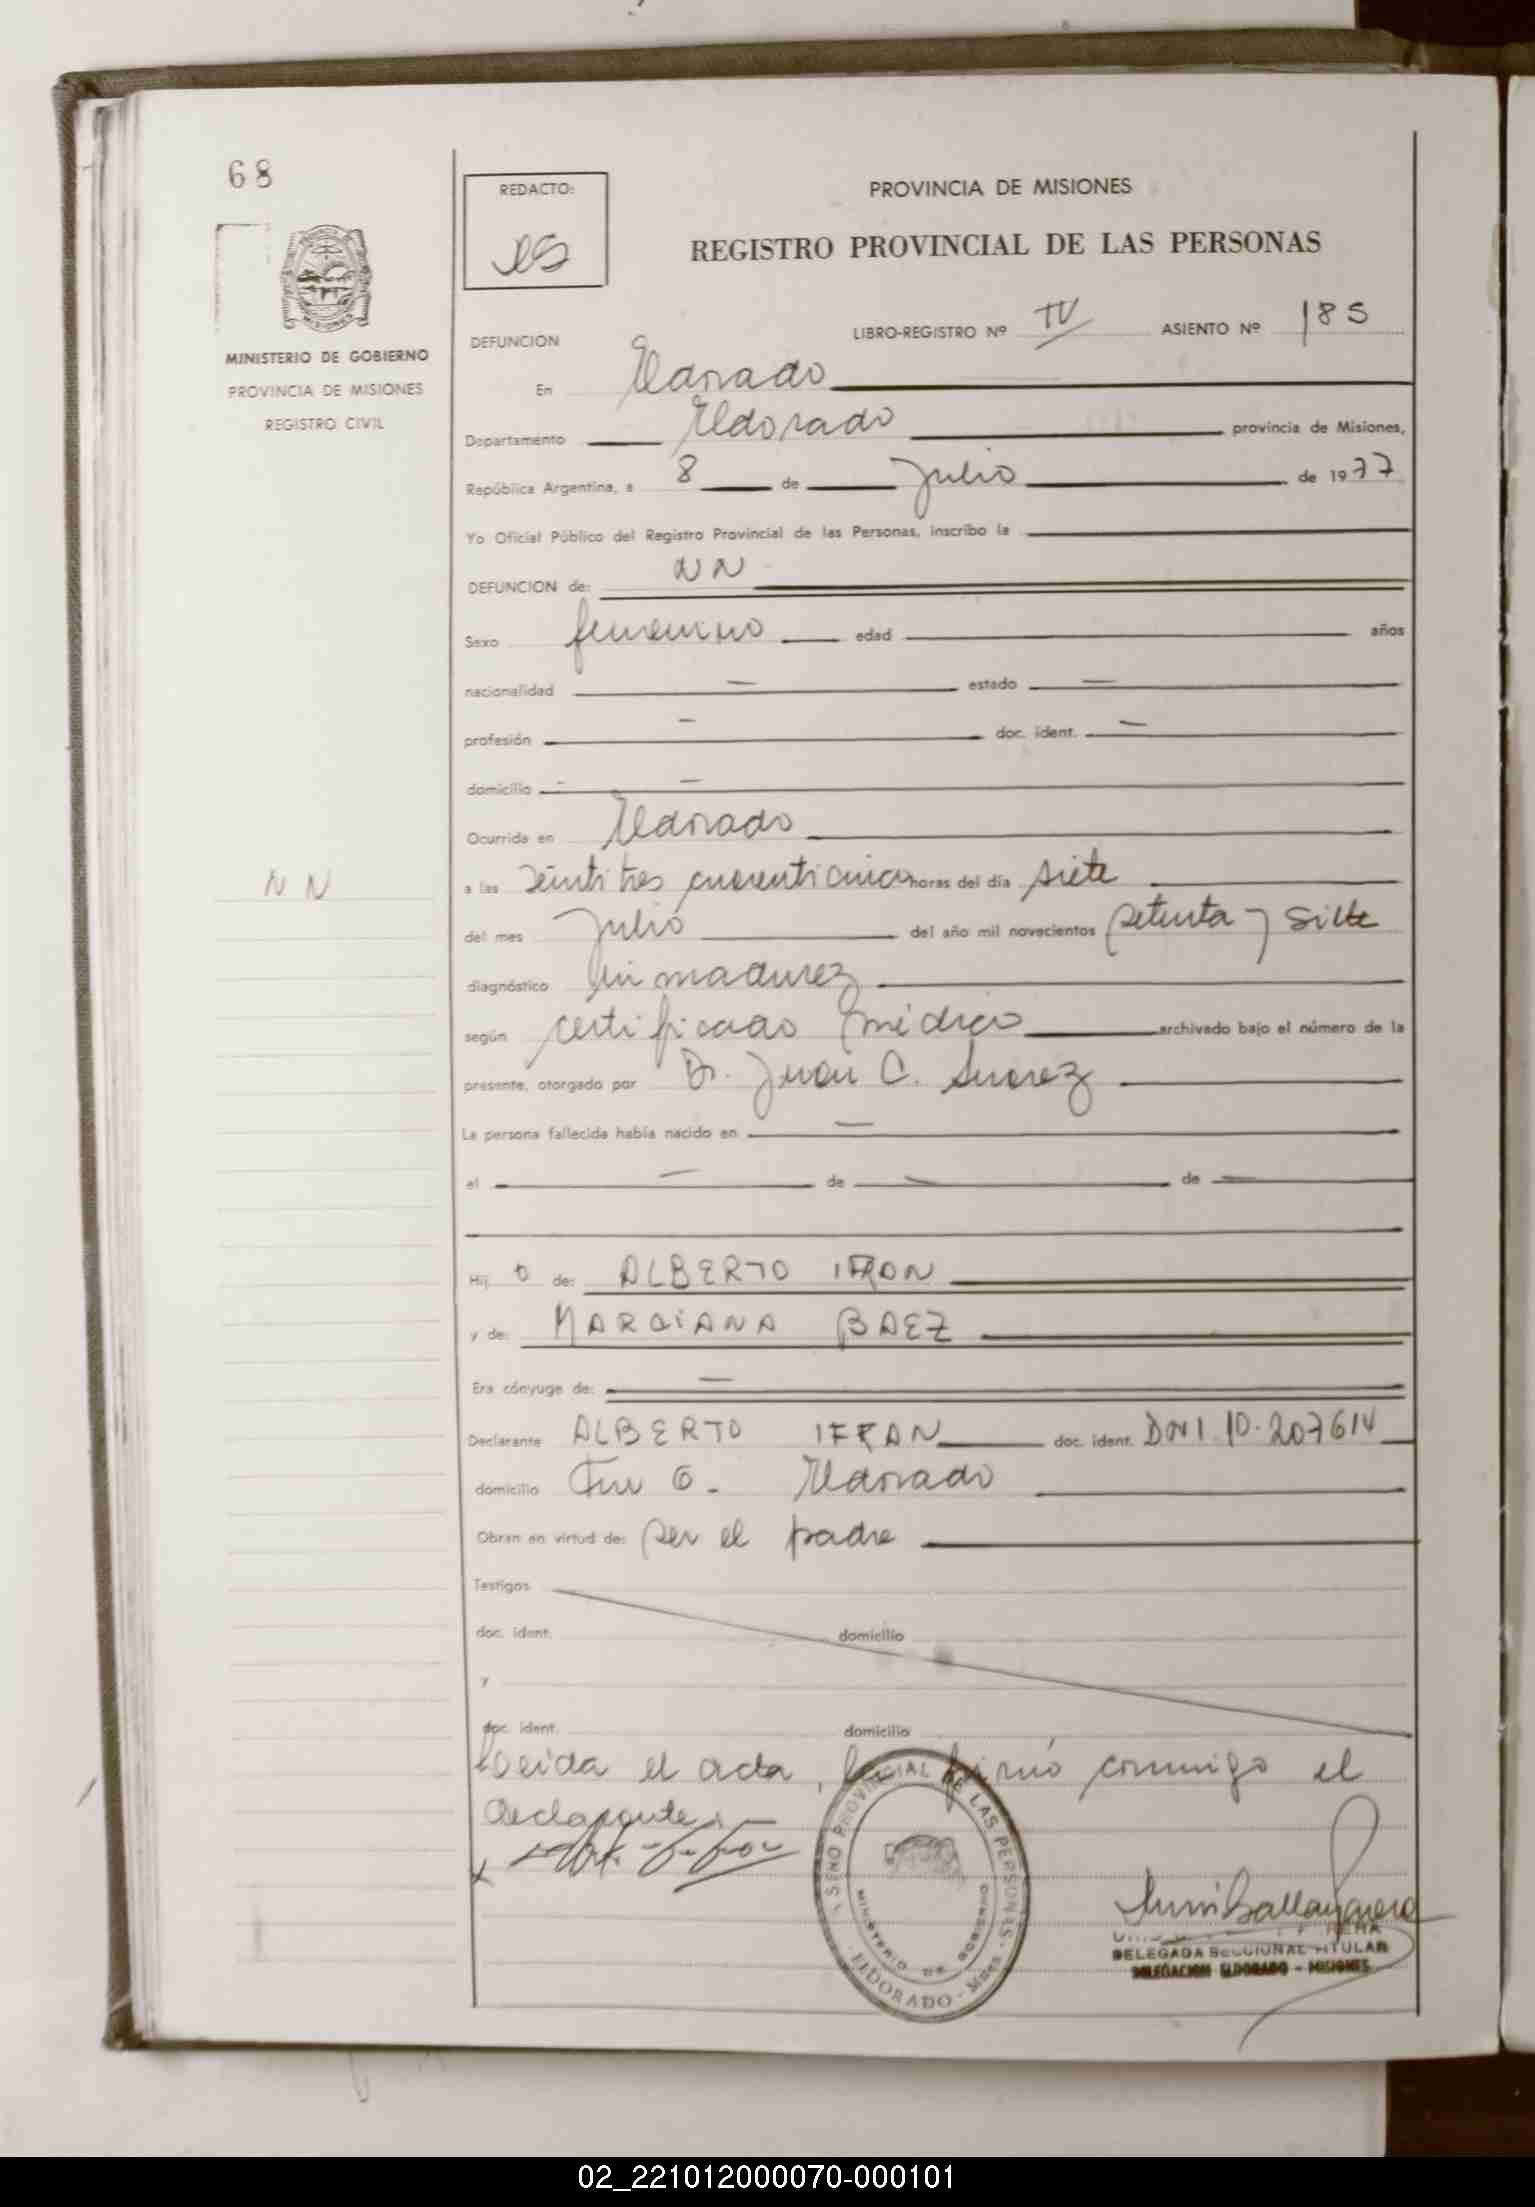 68
REDACTO:
PROVINCIA DE MISIONES
REGISTRO PROVINCIAL DE LAS PERSONAS
MINISTERIO DE GOBIERNO
PROVINCIA DE MISIONES
REGISTRO CIVIL
LIBRO-REGISTRO Nº IV ASIENTO Nº 185
DEFUNCION
En Eldorado
Departamento Eldorado provincia de Misiones,
República Argentina, a 8 de Julio de 1977
Yo Oficial Público del Registro Provincial de las Personas, inscribo la
DEFUNCION de: NN
Sexo femenino edad años
nacionalidad — estado —
profesión — doc. ident. —
domicilio —
Ocurrida en Eldorado
NN
a las veintitres cuarenticinco horas del día siete
del mes Julio del año mil novecientos setenta y siete
diagnóstico inmadurez
según certificado médico archivado bajo el número de la
presente, otorgado por Dr. Juan C. Suarez
La persona fallecida había nacido en —
el — de — de —
Hij o de: ALBERTO IFRAN
y de: MARCIANA BAEZ
Era cónyuge de: —
Declarante ALBERTO IFRAN doc. ident. DNI 10.207614
domicilio Km 6 - Eldorado
Obran en virtud de: ser el padre
Testigos
doc. ident. domicilio
y
doc. ident. domicilio
Leida el acta, la firmó conmigo el
declarante.
REGISTRO PROVINCIAL DE LAS PERSONAS
MINISTERIO DE GOBIERNO
ELDORADO - Mnes.
DELEGADA SECCIONAL TITULAR
DELEGACION ELDORADO - MISIONES
02_221012000070-000101